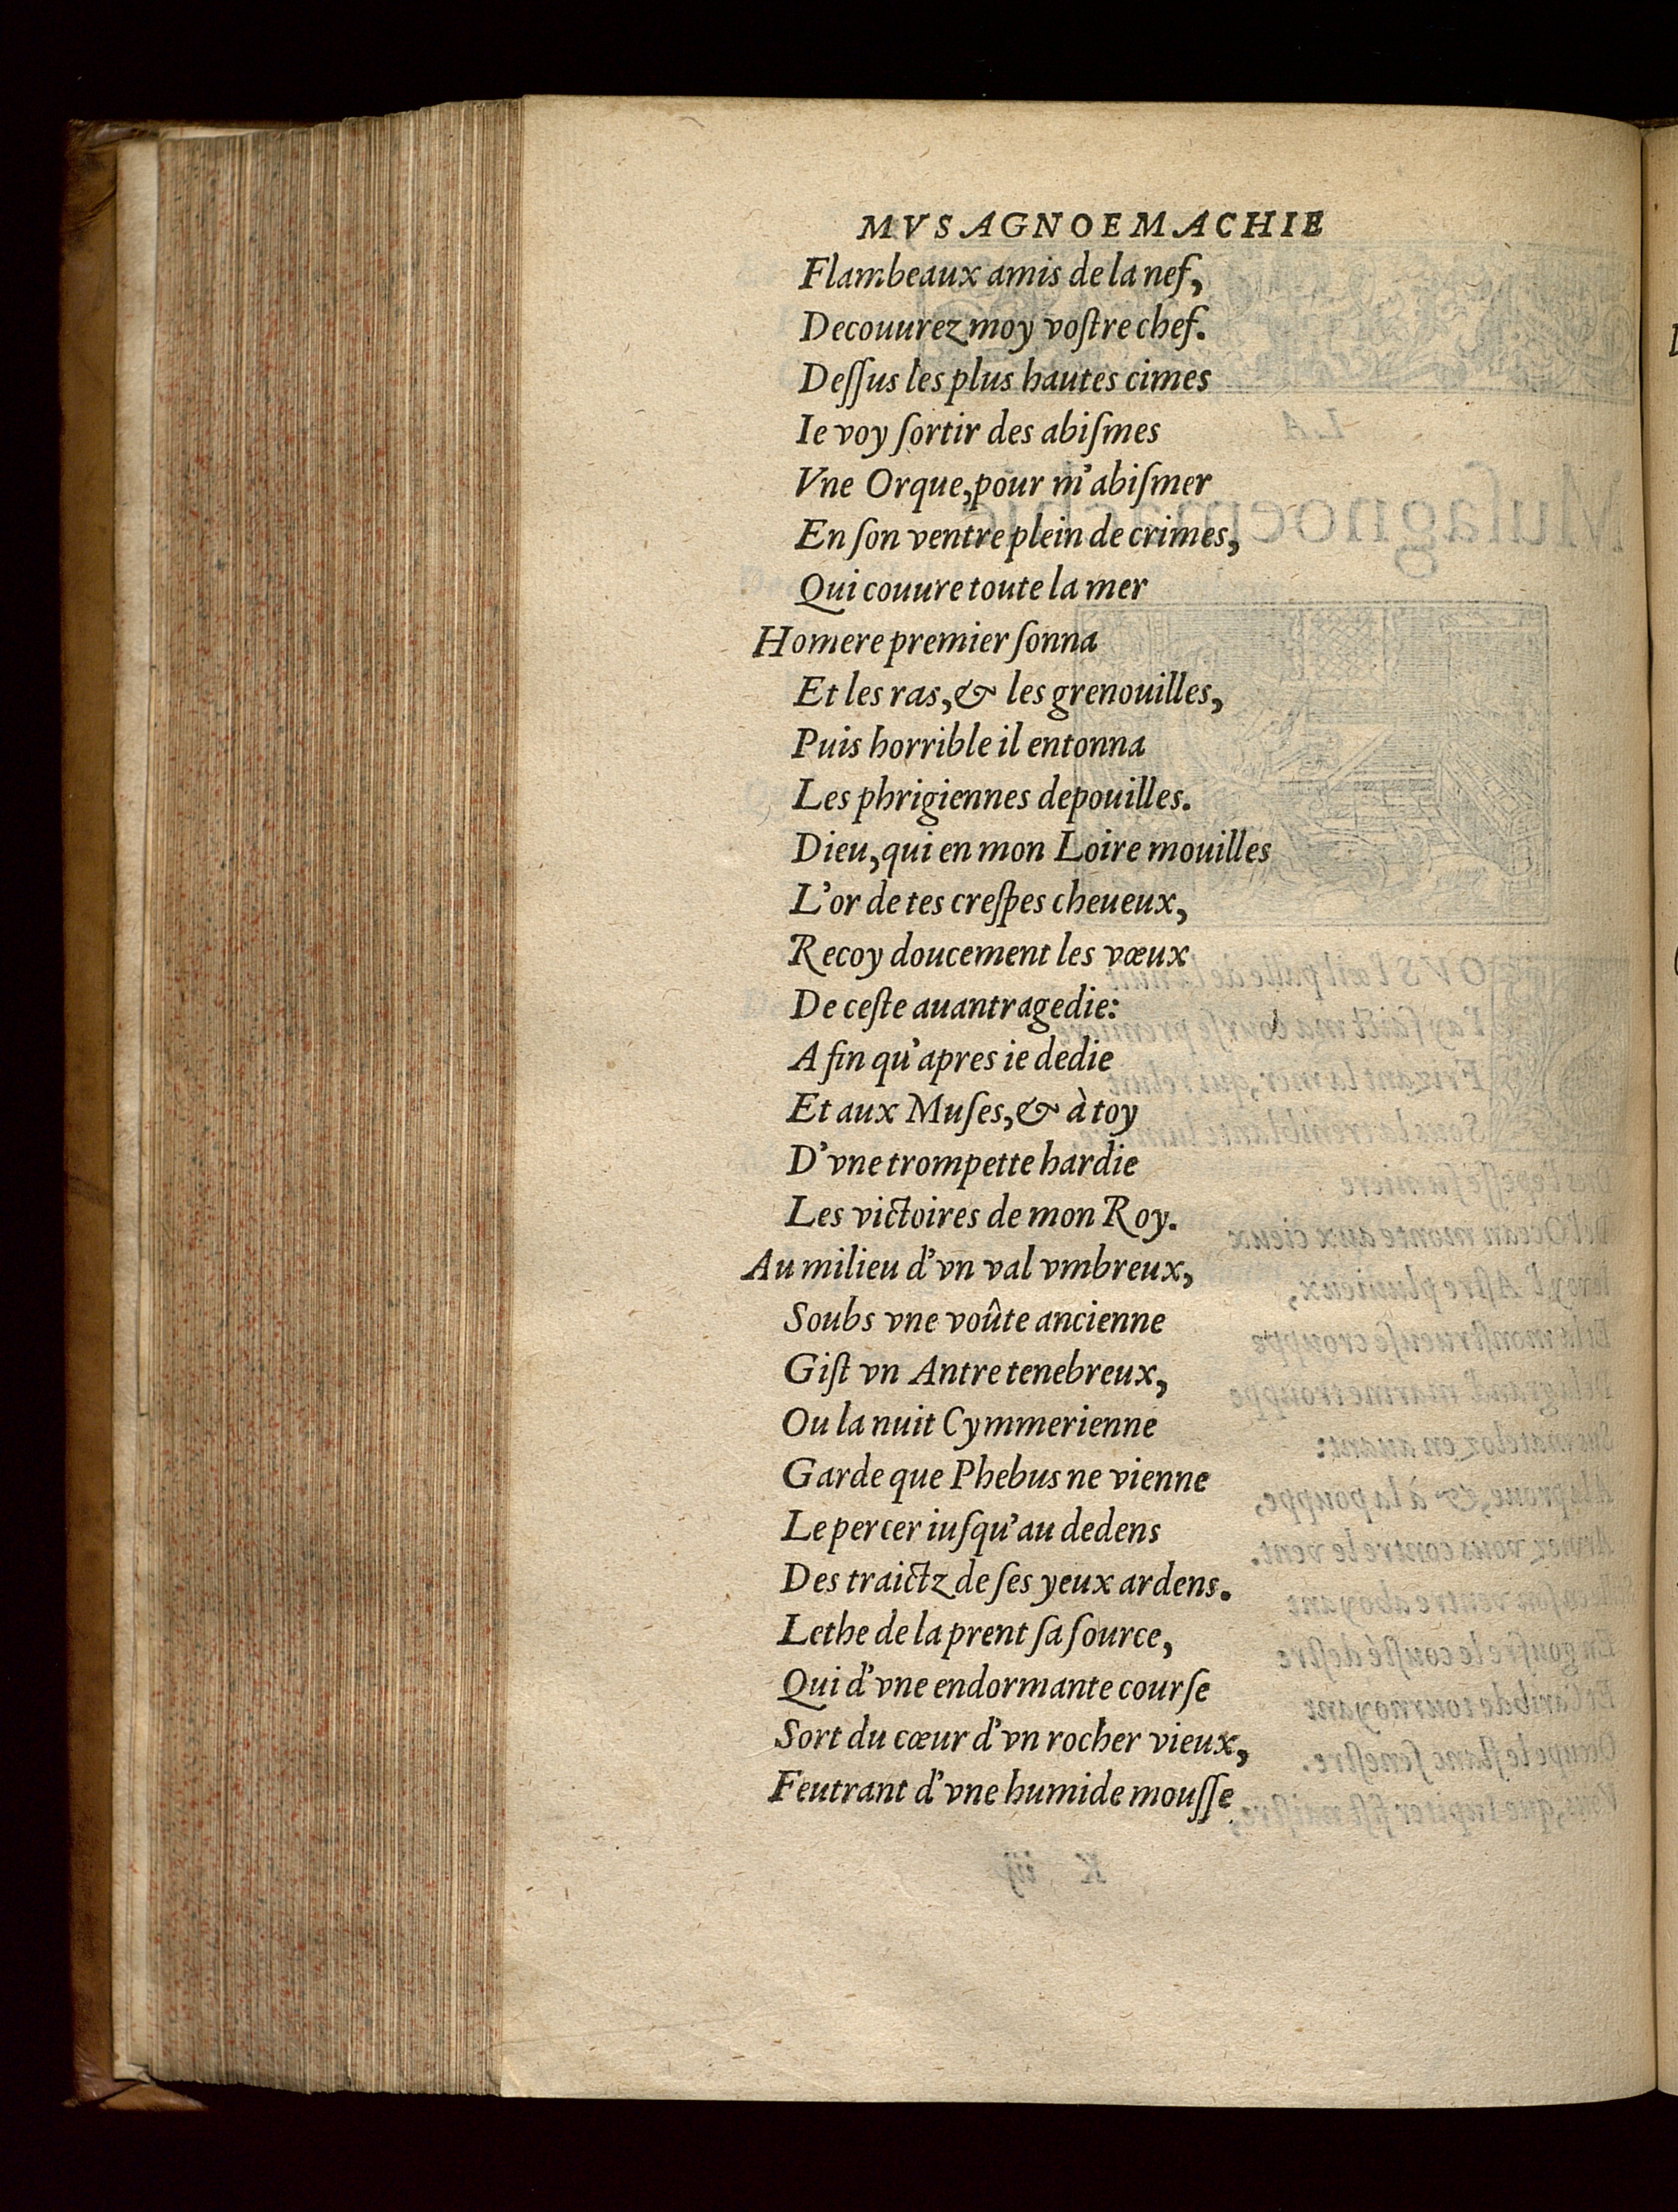 MVSAGNOEMACHIE
Flambeaux amis de la nef,
Decouurez moy voſtre chef.
Deſſus les plus hautes cimes
Ie voy ſortir des abiſmes
Vne Orque, pour m'abiſmer
En ſon ventre plein de crimes,
Qui couure toute la mer
Homere premier ſonna
Et les ras, & les grenouilles,
Puis horrible il entonna
Les phrigiennes depouilles.
Dieu, qui en mon Loire mouilles
L'or de tes creſpes cheueux,
Recoy doucement les vœux
De ceſte auantragedie:
A fin qu'apres ie dedie
Et aux Muſes, & à toy
D'vne trompette hardie
Les victoires de mon Roy.
Au milieu d'vn val vmbreux,
Soubs vne voûte ancienne
Giſt vn Antre tenebreux,
Ou la nuit Cymmerienne
Garde que Phebus ne vienne
Le percer iuſqu'au dedens
Des traictz de ſes yeux ardens.
Lethe de la prent ſa ſource,
Qui d'vne endormante courſe
Sort du cœur d'vn rocher vieux,
Feutrant d'vne humide mouſſe